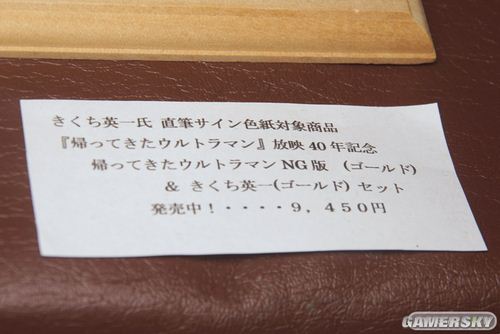 きくち英一氏 直筆サイン色紙対象商品
『帰ってきたウルトラマン』放映40年記念
帰ってきたウルトラマンNG版 (ゴールド)
& きくち英一(ゴールド) セット
発売中!・・・・9,450円
GAMERSKY